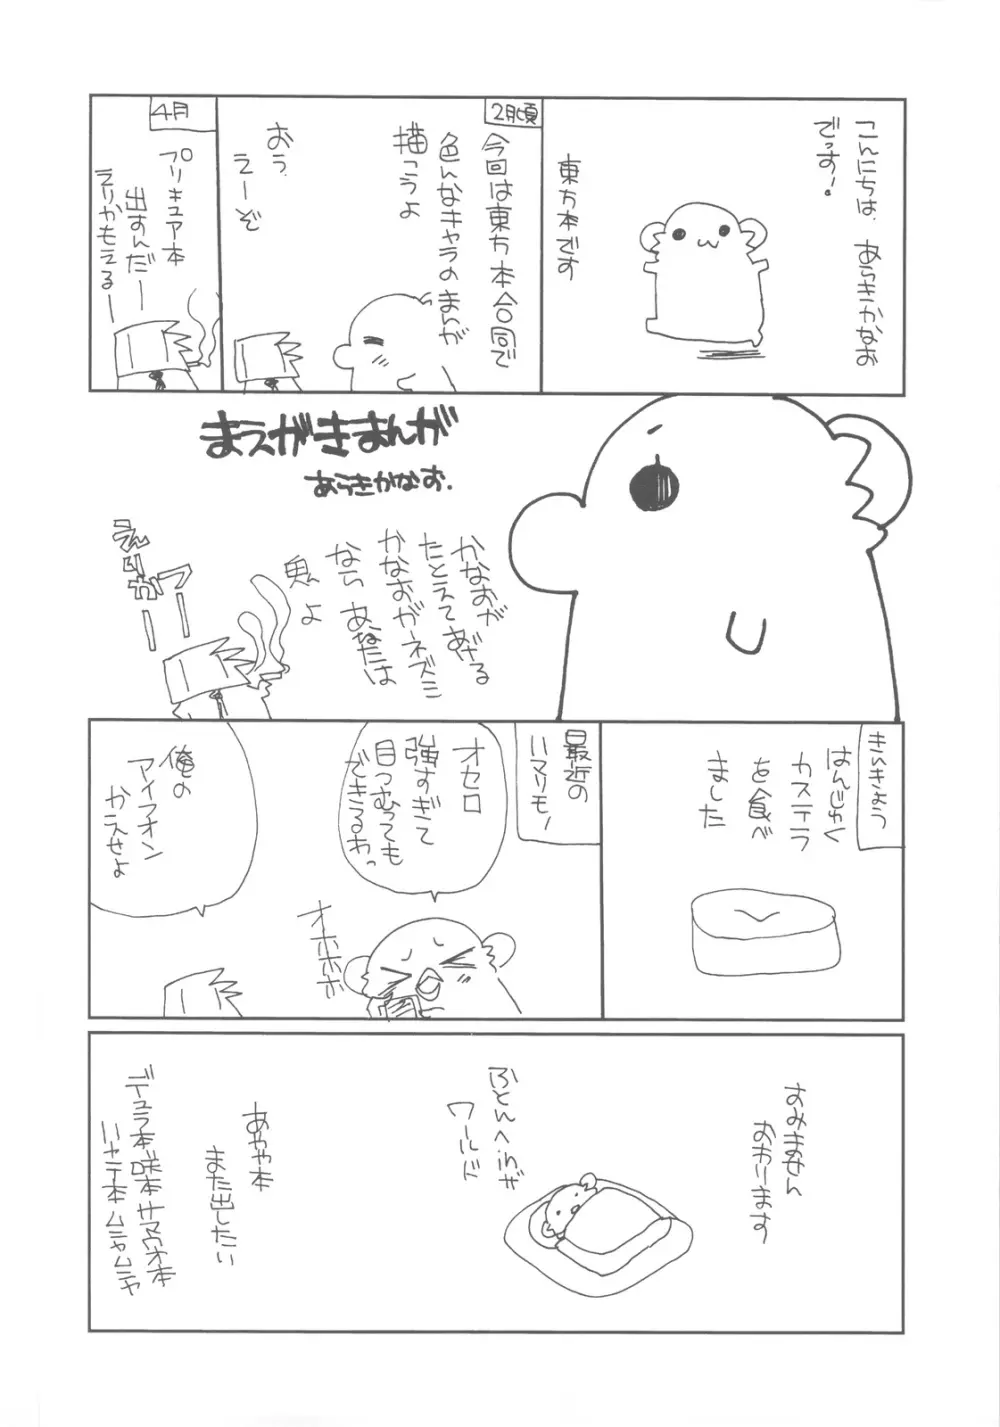 こんにちは、あらきかなお
でっす!
東方本です
2月頃
今回は東方本合同で
色んなキャラのまんが
描こうよ
おぅ
えーぞ
4月
プリキュア本
出すんだー
えりかもえるー
まえがきまんが
あらきかなお.
かなおが
たとえてあげる
かなおがネズミ
なら あなたは
魚よ
えりかーっー
きんきょう
はんじゅく
カステラ
を食べ
ました
最近の
ハマリモノ
オセロ
強すぎて
目つむってても
できるわっ
オホホホ
俺の
アイフォン
かえせよ
すみません
おわります
ふとんへinザ
ワールド
あやや本
また出したい
デュラ本咲本サマウオ本
ハヤテ本ムニャムニャ